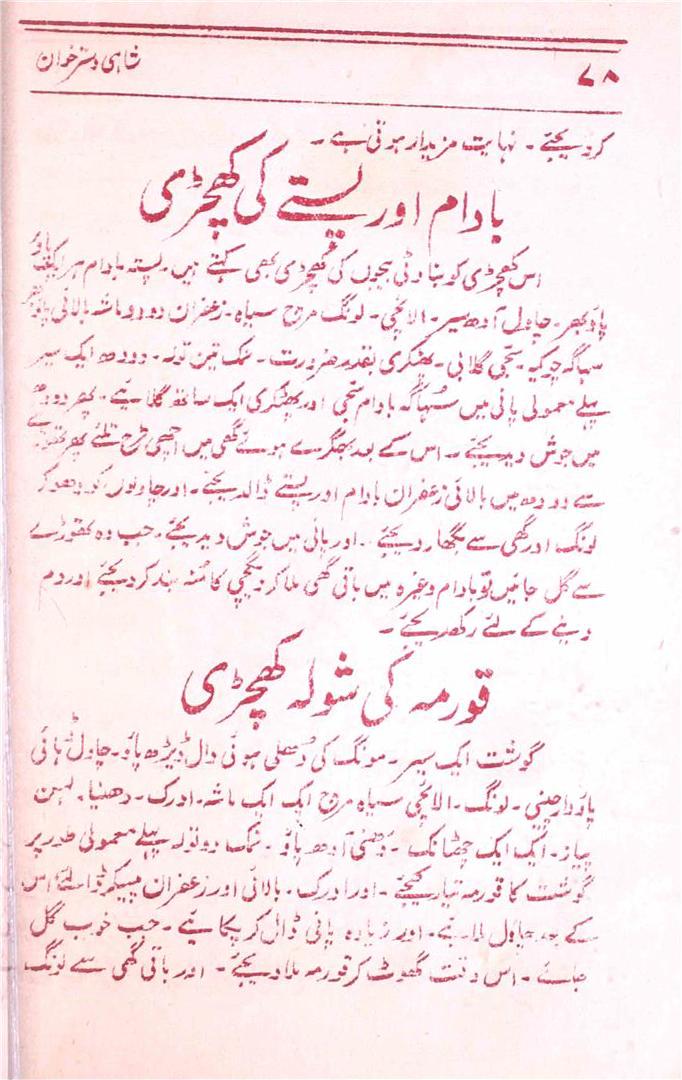 ۷۸ شاہی دسترخوان
کردیجئے۔ نہایت مزیدار ہوتی ہے۔
بادام اور پستے کی کھچڑی
اس کھچڑی کو بناوٹی بیجوں کی کھچڑی بھی کہتے ہیں۔ پستہ بادام ہر ایک پاؤ
پاؤ بھر۔ چاول آدھ سیر۔ الائچی۔ لونگ مرچ سیاہ۔ زعفران دو دو ماشہ بالائی پاؤ بھر
سہاگہ چوکیہ سجی گلابی۔ پھٹکری بقدر ضرورت۔ نمک تین تولہ۔ دودھ ایک سیر
پہلے معمولی پانی میں سہاگہ بادام سجی اور پھٹکری ایک ساتھ گلایئے۔ پھر دودھ
میں جوش دیدیجئے۔ اس کے بعد بھگرے ہوئے گھی میں اچھی طرح تلئے پھر تھوڑے
سے دودھ میں بالائی زعفران بادام اور پستے ڈالدیجئے۔ اور چاولوں کو دھو کر
لونگ اور گھی سے بگھار دیجئے۔ اور پانی میں جوش دیدیجئے۔ جب وہ تھوڑے
سے گل جائیں تو بادام وغیرہ میں باقی گھی ملا کر دیگچی کا منہ بند کردیجئے اور دم
دینے کے لئے رکھدیجئے۔
قورمہ کی شولہ کھچڑی
گوشت ایک سیر۔ مونگ کی دھلی ہوئی دال ڈیڑھ پاؤ۔ چاول ڈہائی
پاؤ دارچینی۔ لونگ۔ الائچی سیاہ مرچ ایک ایک ماشہ۔ ادرک۔ دھنیا۔ لہسن
پیاز۔ ایک ایک چھٹانک۔ دھنی آدھ پاؤ۔ نمک دو تولہ پہلے معمولی طور پر
گوشت کا قورمہ تیار کیجئے۔ اور ادرک۔ بالائی اور زعفران پیسکر ڈالئے اس
کے بعد چاول لایئے۔ اور زیادہ پانی ڈال کر پکایئے۔ جب خوب گل
جائے۔ اس وقت گھوٹ کر قورمہ ملادیجئے۔ اور باقی گھی سے لونگ